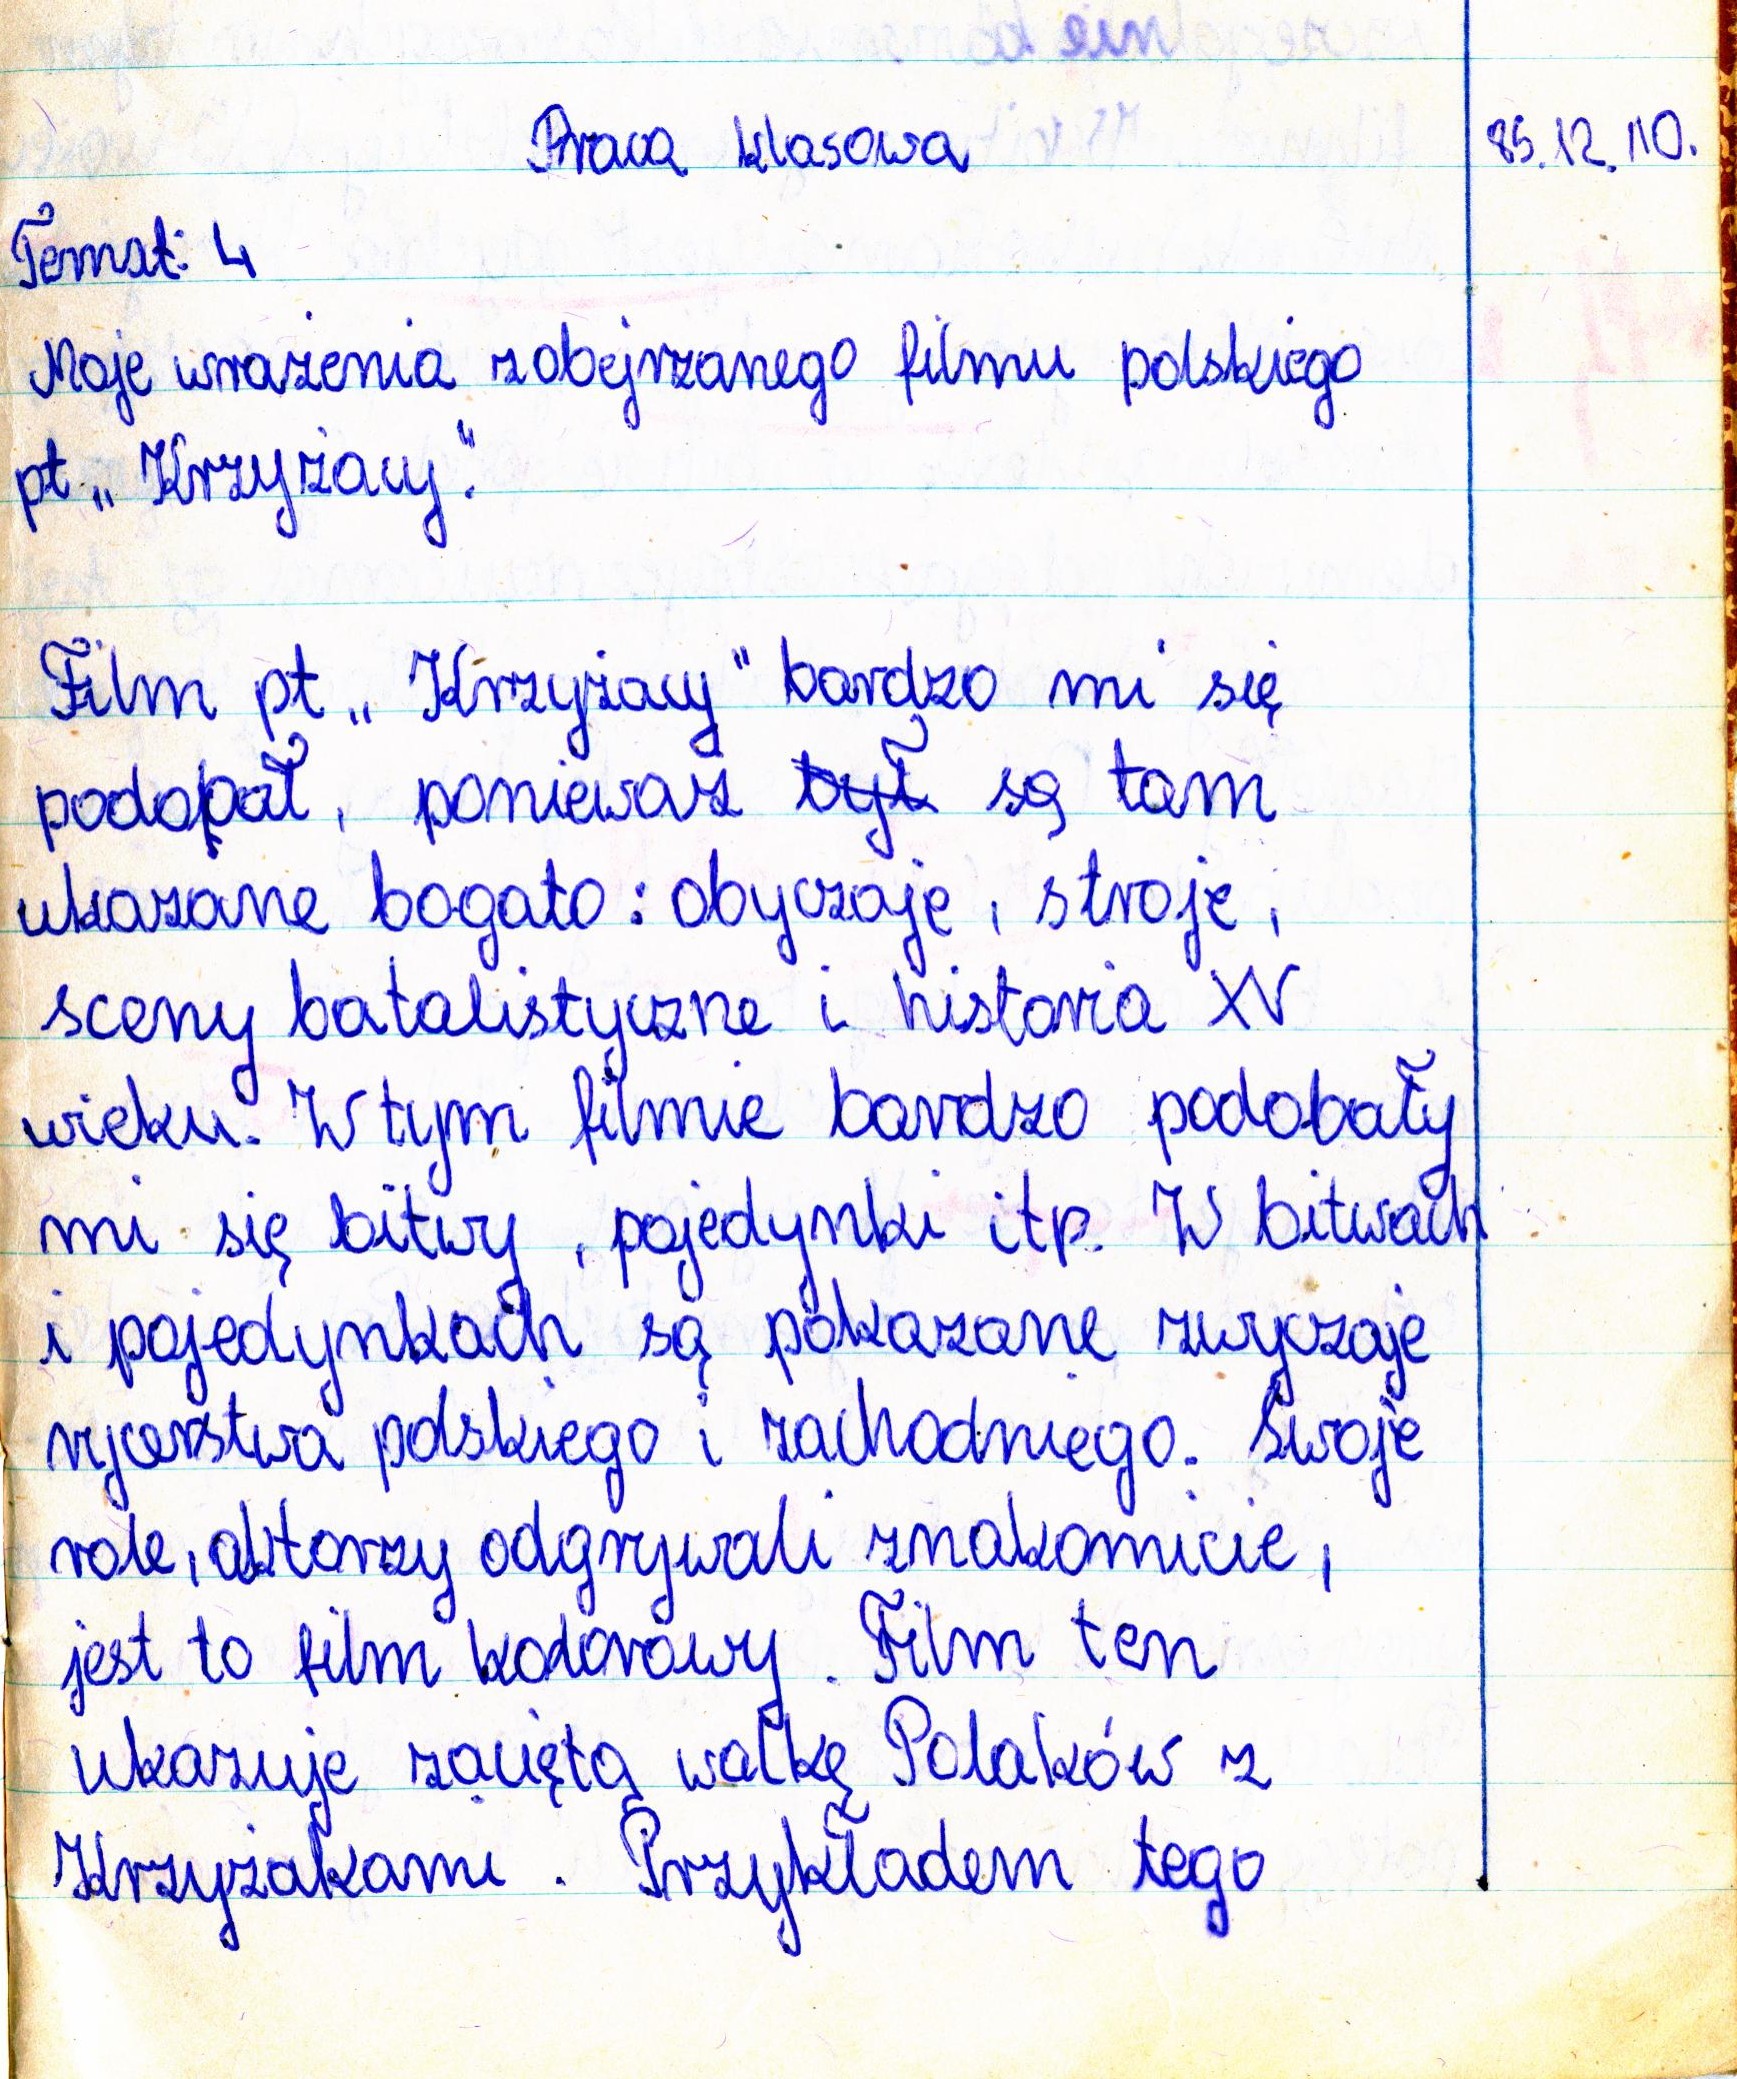 Praca klasowa 85.12.10.
Temat: 4
Moje wrażenia z obejrzanego filmu polskiego
pt „Krzyżacy".
Film pt „Krzyżacy" bardzo mi się
podobał, ponieważ był są tam
ukazane bogato: obyczaje, stroje,
sceny batalistyczne i historia XV
wieku. W tym filmie bardzo podobały
mi się bitwy, pojedynki itp. W bitwach
i pojedynkach są pokazane zwyczaje
rycerstwa polskiego i zachodniego. Swoje
role, aktorzy odgrywali znakomicie,
jest to film kolorowy. Film ten
ukazuje zaciętą walkę Polaków z
Krzyżakami. Przykładem tego